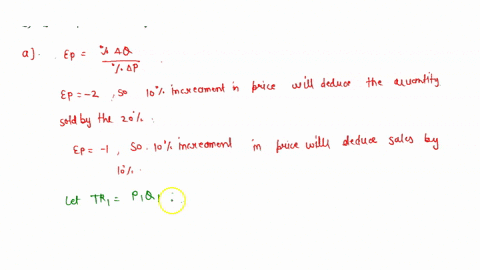 a). Ep = % ΔQ
% ΔP
Ep = -2 , so 10% increament in price will deduce the quantity
sold by the 20% .
Ep = -1 , so 10% increament in price wills deduce sales by
10% .
Let TR1 = P1Q1 :